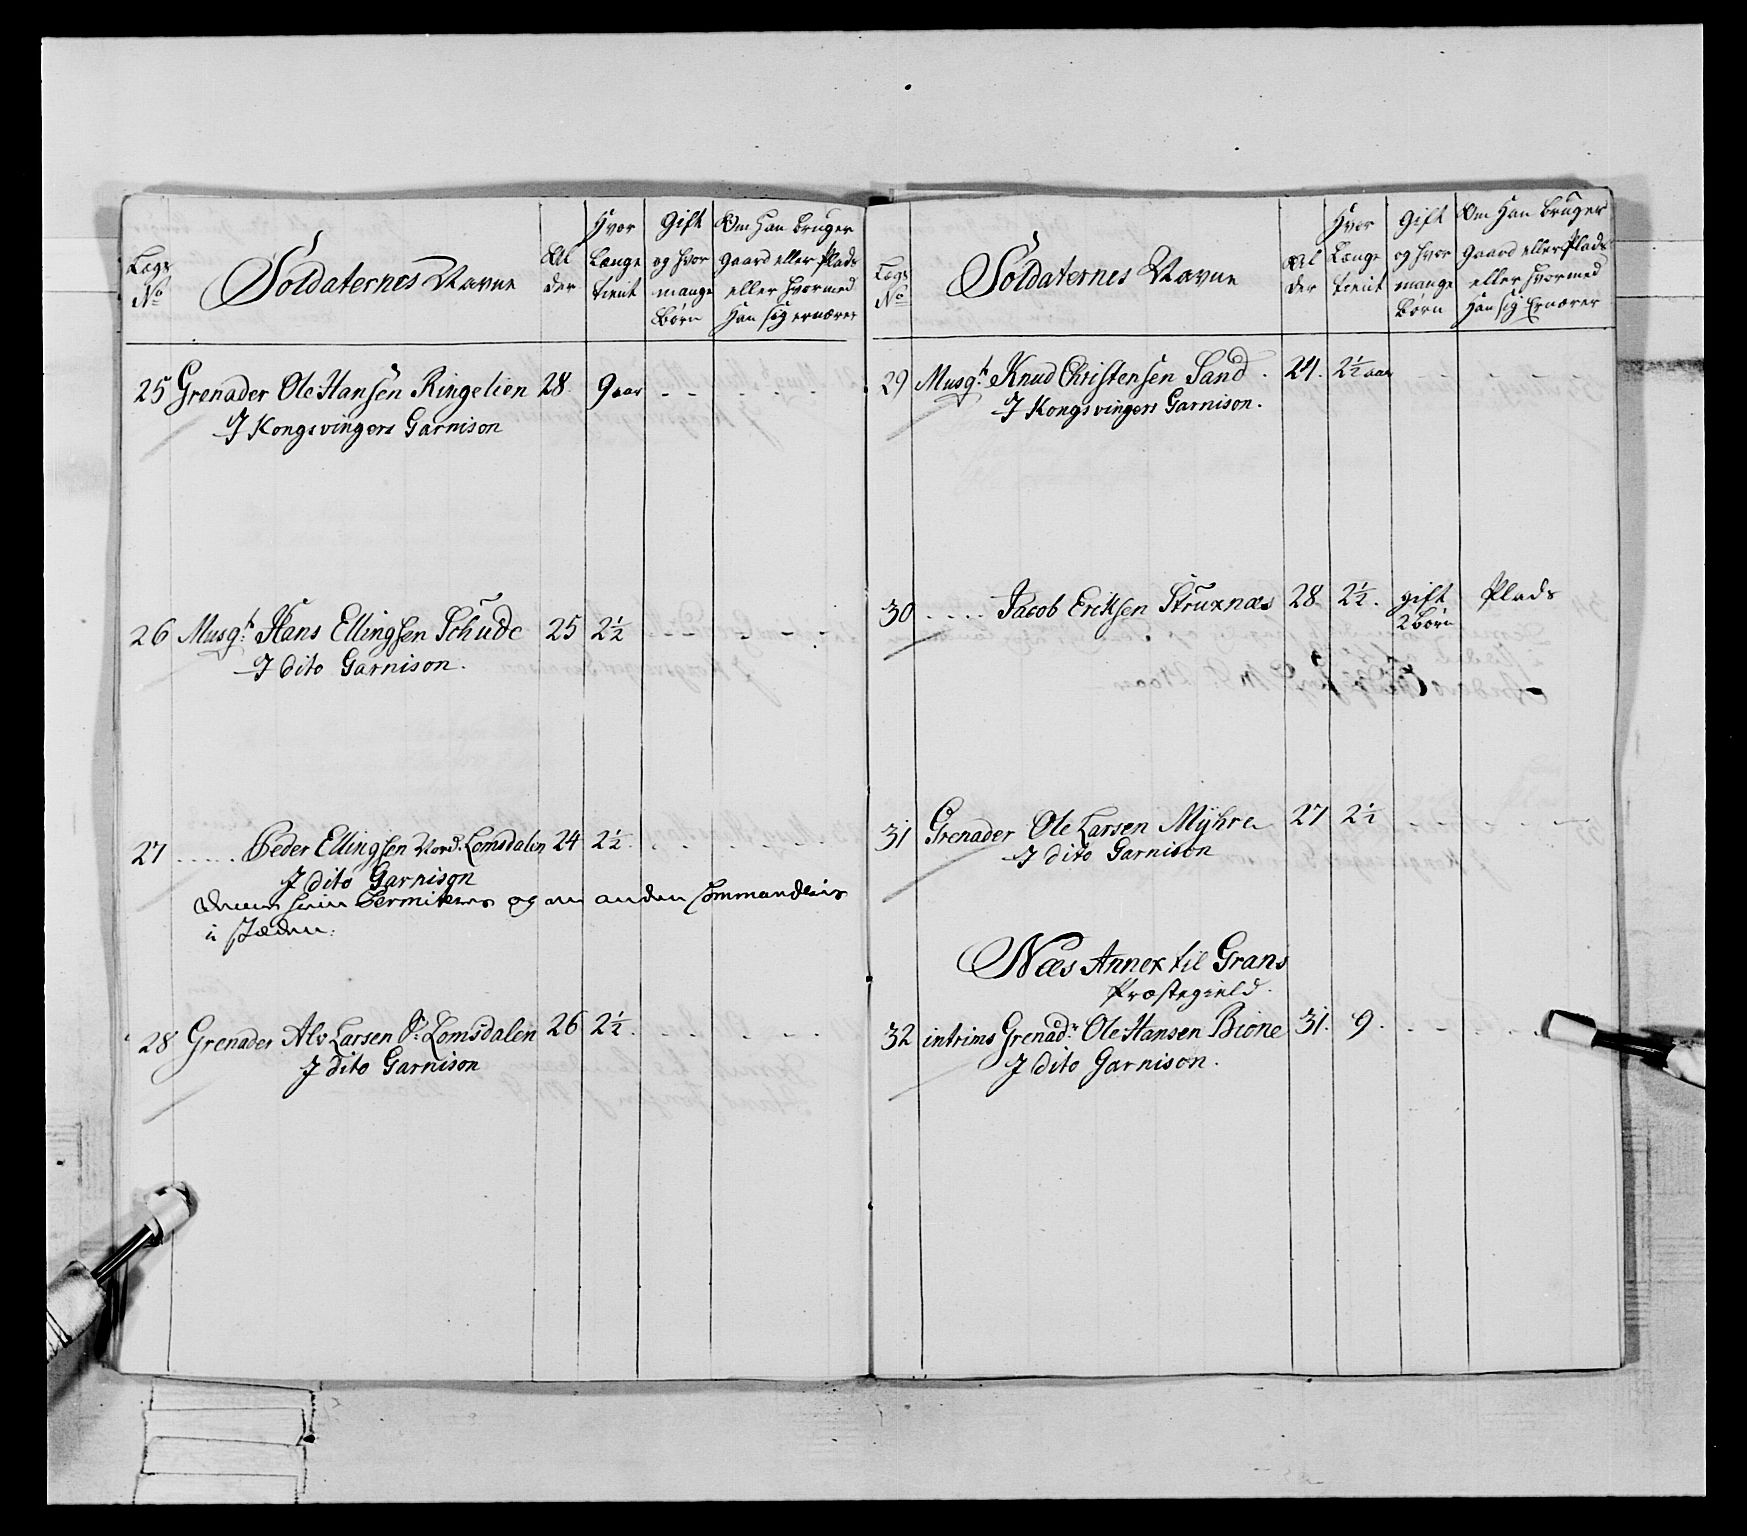 Lægs No
Soldaternes Navne
Al der
Hvor Længe tient
Gift og hvor mange Børn
Om Han bruger Gaard eller Plads eller hvormed Han sig ernærer
25 Grenader Ole Hansen Ringelien 28 9 aar - - - - -
J Kongsvingers Garnison
26 Musqt. Hans Ellingsen Schude 25 2½ - - - - -
J dito Garnison.
27 ..... Peder Ellingsen Nord. Lomsdalen 24 2½ . . . . .
J dito Garnison
Permiteres og en anden Commanderis
i stæden.
28 Grenader Alv Larsen S. Lomsdalen 26 2½. . - . - -
J dito Garnison
Lægs No
Soldaternes Navne
Al der
Hvor Længe tient
Gift og hvor mange Børn
Om Han bruger Gaard eller Plads eller hvormed Han sig Ernærer
29 Musqt. Knud Christensen Sand. 24. 2½ aar - - - - -
J Kongsvingers Garnison.
30 .... Jacob Ericksen Struxnæs 28 2½. gift Plads
2 børn
31 Grenader Ole Larsen Mÿhre 27 2½ - - - - -
J dito Garnison
Næs Annex til Grans
Præstegield.
32 intrims Grenadr. Ole Hansen Bione 31. 9. - - - - -
J dito Garnison.